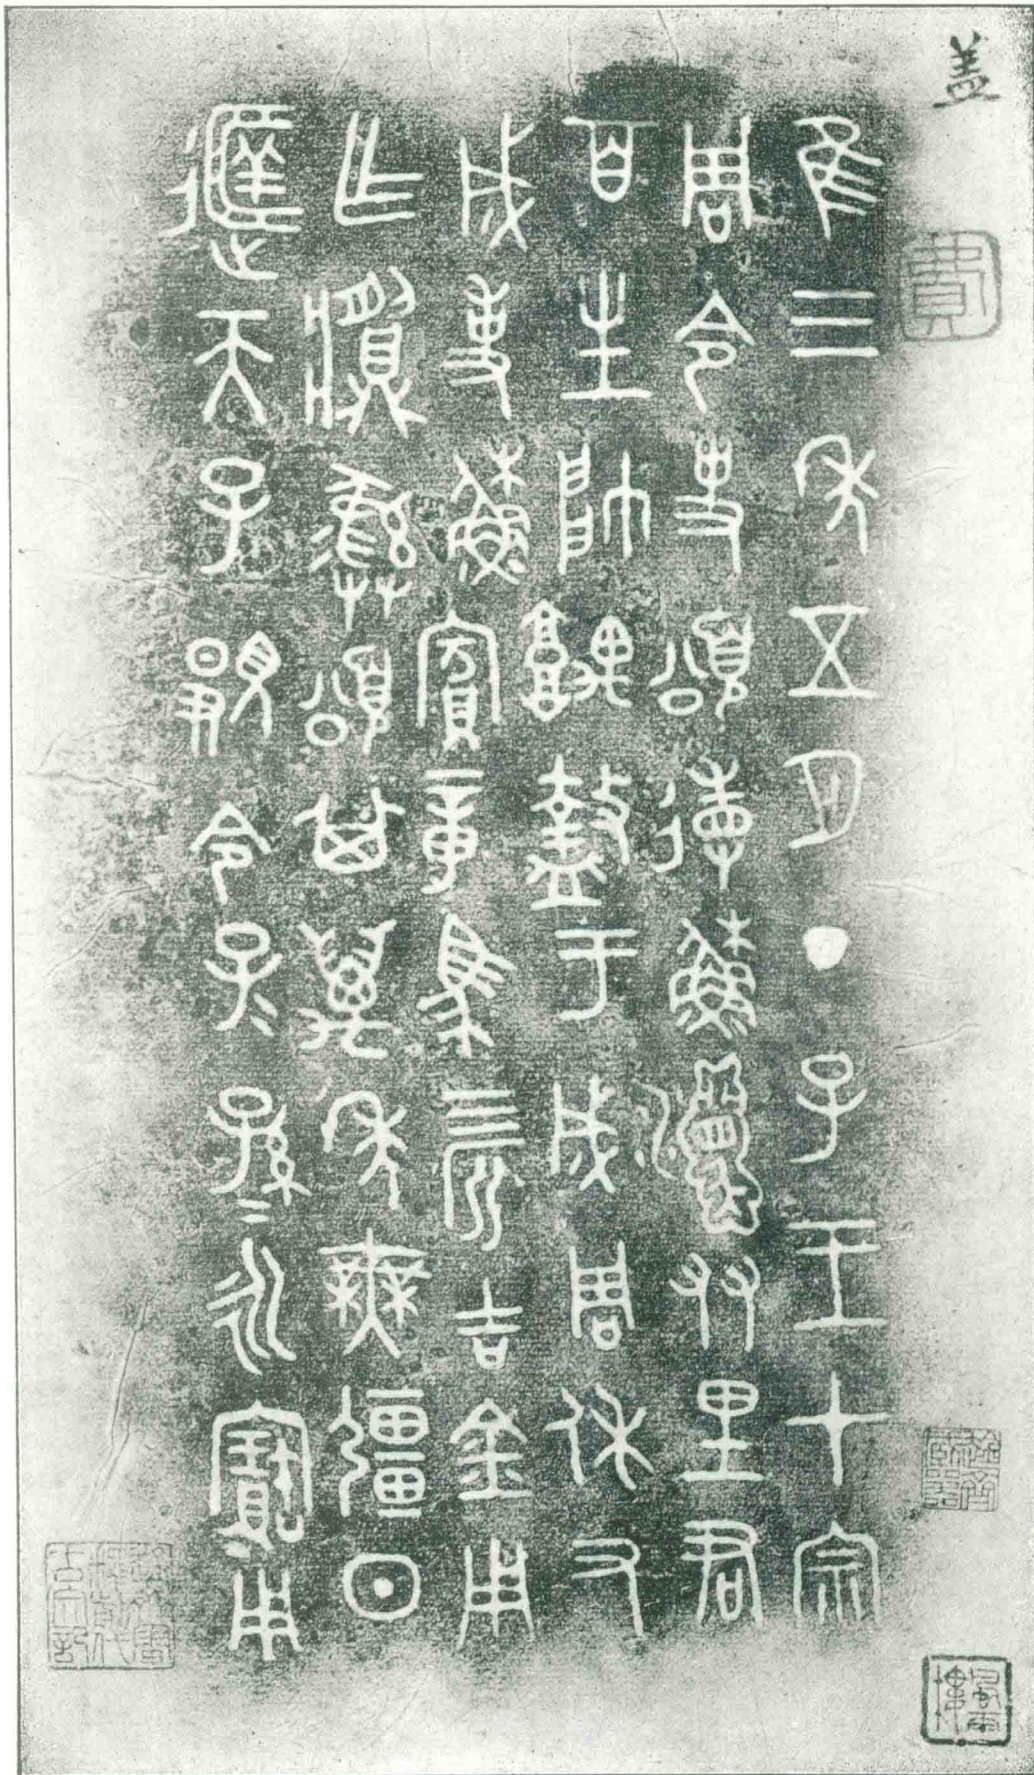 蓋
隹三年五月丁子王才宗
周令史頌省穌友里君
百生帥盩于成周休又
成事穌賓章馬三匹吉金用
乍䵼彝頌其萬年無疆日
天子令子=孫=永寶用